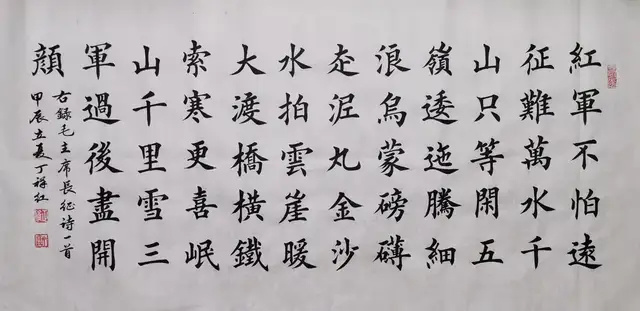 紅軍不怕遠
征難萬水千
山只等閑五
嶺逶迤騰細
浪烏蒙磅礴
走泥丸金沙
水拍雲崖暖
大渡橋橫鐵
索寒更喜岷
山千里雪三
軍過後盡開
顔
右錄毛主席長征诗一首
甲辰立夏丁祥红